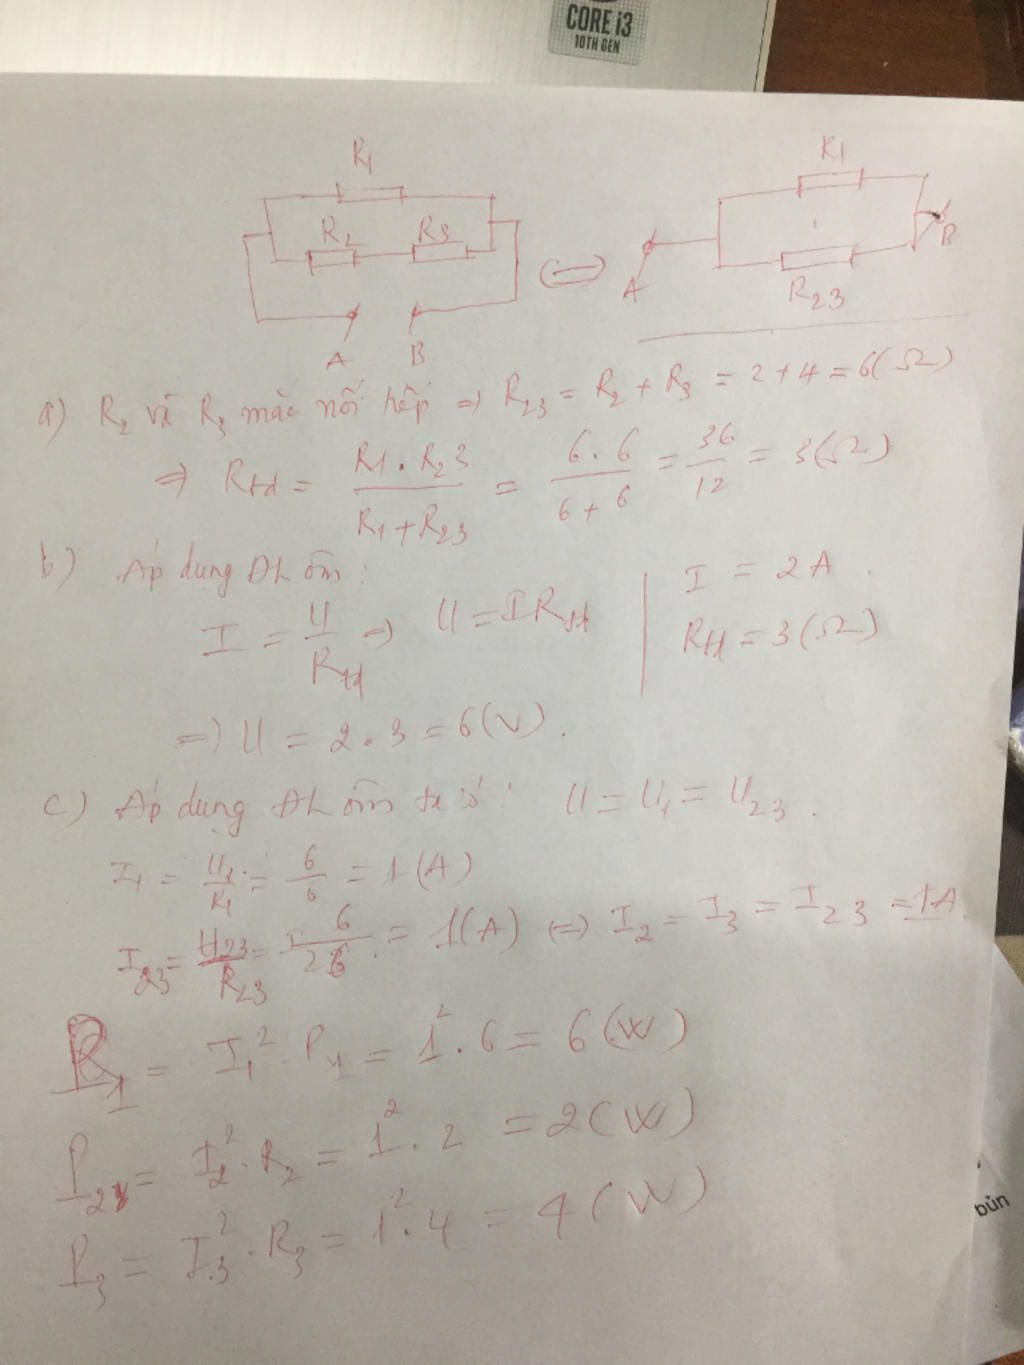 CORE i3
10TH GEN
R1
R2 R3
A B
R1
A B
R23
a) R2 và R3 mắc nối tiếp => R23 = R2 + R3 = 2 + 4 = 6(Ω)
=> Rtđ = R1 . R23 / R1 + R23 = 6 . 6 / 6 + 6 = 36 / 12 = 3(Ω)
b) Áp dụng ĐL ôm:
I = U / Rtđ => U = I Rtđ
I = 2A
Rtđ = 3(Ω)
=> U = 2 . 3 = 6(V).
c) Áp dụng ĐL ôm ta có: U = U1 = U23.
I1 = U1 / R1 = 6 / 6 = 1(A)
I23 = U23 / R23 = 6 / 6 = 1(A) <=> I2 = I3 = I23 = 1A
P1 = I1² . P1 = 1² . 6 = 6(W)
P2 = I2² . R2 = 1² . 2 = 2(W)
P3 = I3² . R3 = 1² . 4 = 4(W)
bủn